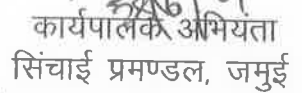 कार्यपालक अभियंता
सिंचाई प्रमण्डल, जमुई